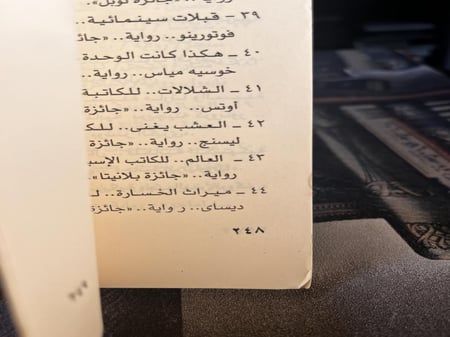 رواية.. «جائزة نوبل».
٣٩ – قبلات سينمائية..
فوتورينو.. رواية.. «جائزة
٤٠ – هكذا كانت الوحدة
خوسيه مياس.. رواية..
٤١ – الشلالات.. للكاتبة
أوتس.. رواية.. «جائزة
٤٢ – العشب يغنى.. للك
ليسنج.. رواية.. «جائزة
٤٣ – العالم.. للكاتب الإسب
رواية.. «جائزة بلانيتا».
٤٤ – ميراث الخسارة.. لـ
ديساى.. رواية.. «جائزة
٢٤٨